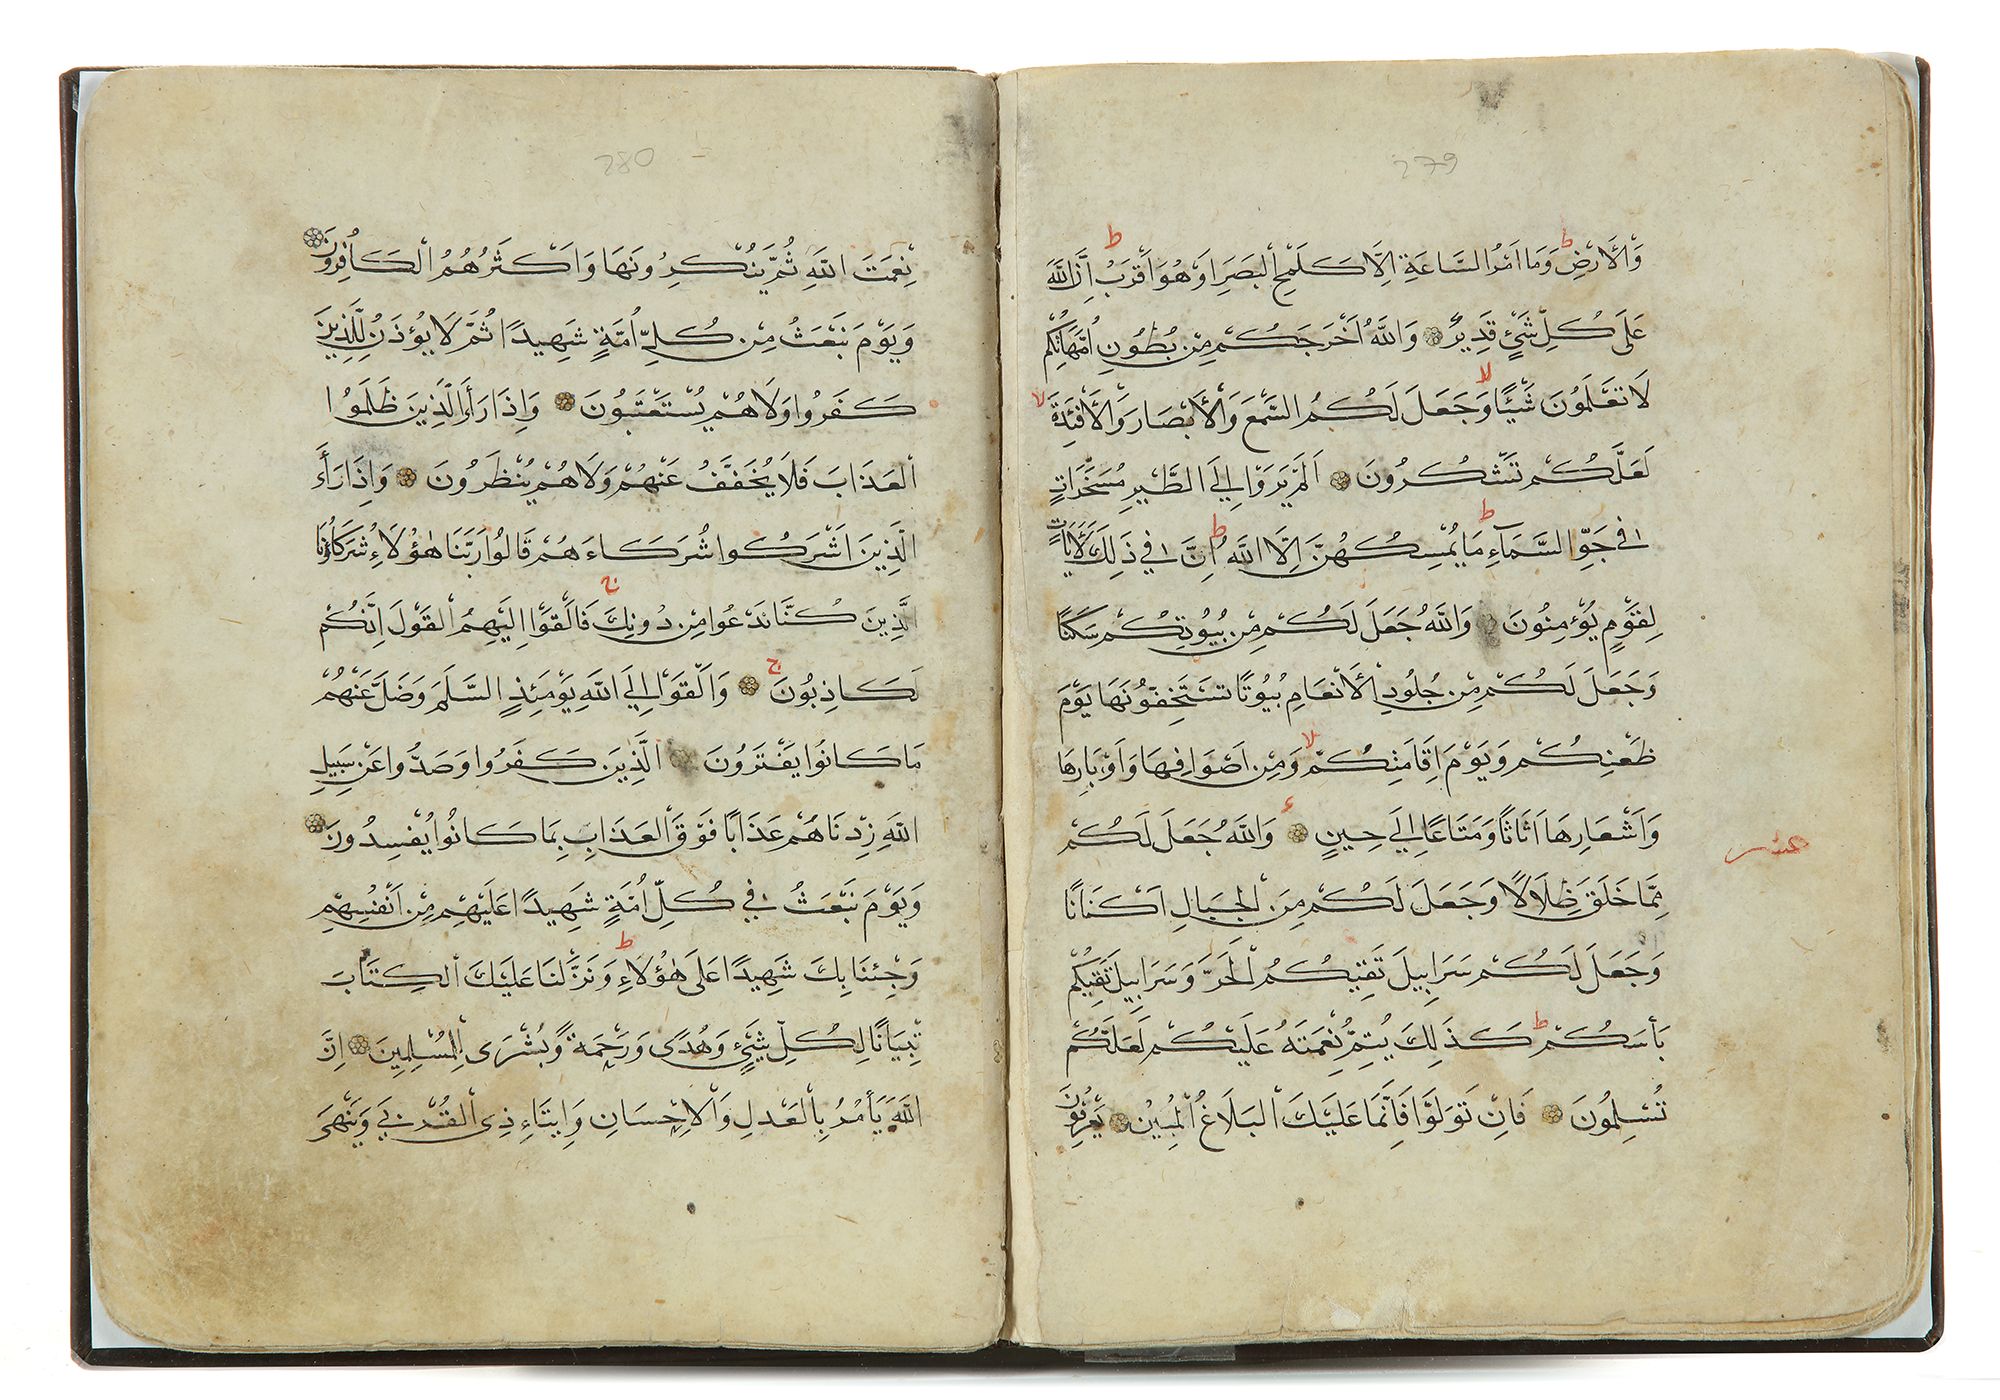 279
وَالْأَرْضِ وَمَا اَمْرُ السَّاعَةِ اِلَّا كَلَمْحِ الْبَصَرِ اَوْ هُوَ اَقْرَبُ اِنَّ اللَّهَ
عَلَى كُلِّ شَيْءٍ قَدِيرٌ وَاللَّهُ اَخْرَجَكُمْ مِنْ بُطُونِ اُمَّهَاتِكُمْ
لَا تَعْلَمُونَ شَيْئًا وَجَعَلَ لَكُمُ السَّمْعَ وَالْأَبْصَارَ وَالْأَفْئِدَةَ
لَعَلَّكُمْ تَشْكُرُونَ اَلَمْ يَرَوْا اِلَى الطَّيْرِ مُسَخَّرَاتٍ
فِي جَوِّ السَّمَاءِ مَا يُمْسِكُهُنَّ اِلَّا اللَّهُ اِنَّ فِي ذَلِكَ لَأَيَاتٍ
لِقَوْمٍ يُؤْمِنُونَ وَاللَّهُ جَعَلَ لَكُمْ مِنْ بُيُوتِكُمْ سَكَنًا
وَجَعَلَ لَكُمْ مِنْ جُلُودِ الْأَنْعَامِ بُيُوتًا تَسْتَخِفُّونَهَا يَوْمَ
ظَعْنِكُمْ وَيَوْمَ اِقَامَتِكُمْ وَمِنْ اَصْوَافِهَا وَاَوْبَارِهَا
وَاَشْعَارِهَا اَثَاثًا وَمَتَاعًا اِلَى حِينٍ وَاللَّهُ جَعَلَ لَكُمْ
عشر
مِمَّا خَلَقَ ظِلَالًا وَجَعَلَ لَكُمْ مِنَ الْجِبَالِ اَكْنَانًا
وَجَعَلَ لَكُمْ سَرَابِيلَ تَقِيكُمُ الْحَرَّ وَسَرَابِيلَ تَقِيكُمْ
بَأْسَكُمْ كَذَلِكَ يُتِمُّ نِعْمَتَهُ عَلَيْكُمْ لَعَلَّكُمْ
تُسْلِمُونَ فَاِنْ تَوَلَّوْا فَاِنَّمَا عَلَيْكَ الْبَلَاغُ الْمُبِينُ يَعْرِفُونَ
280
نِعْمَتَ اللَّهِ ثُمَّ يُنْكِرُونَهَا وَاَكْثَرُهُمُ الْكَافِرُونَ
وَيَوْمَ نَبْعَثُ مِنْ كُلِّ اُمَّةٍ شَهِيدًا ثُمَّ لَا يُؤْذَنُ لِلَّذِينَ
كَفَرُوا وَلَا هُمْ يُسْتَعْتَبُونَ وَاِذَا رَأَى الَّذِينَ ظَلَمُوا
الْعَذَابَ فَلَا يُخَفَّفُ عَنْهُمْ وَلَا هُمْ يُنْظَرُونَ وَاِذَا رَأَى
الَّذِينَ اَشْرَكُوا شُرَكَاءَهُمْ قَالُوا رَبَّنَا هٰؤُلَاءِ شُرَكَاؤُنَا
الَّذِينَ كُنَّا نَدْعُوا مِنْ دُونِكَ فَاَلْقَوْا اِلَيْهِمُ الْقَوْلَ اِنَّكُمْ
لَكَاذِبُونَ وَاَلْقَوْا اِلَى اللَّهِ يَوْمَئِذٍ السَّلَمَ وَضَلَّ عَنْهُمْ
مَا كَانُوا يَفْتَرُونَ الَّذِينَ كَفَرُوا وَصَدُّوا عَنْ سَبِيلِ
اللَّهِ زِدْنَاهُمْ عَذَابًا فَوْقَ الْعَذَابِ بِمَا كَانُوا يُفْسِدُونَ
وَيَوْمَ نَبْعَثُ فِي كُلِّ اُمَّةٍ شَهِيدًا عَلَيْهِمْ مِنْ اَنْفُسِهِمْ
وَجِئْنَا بِكَ شَهِيدًا عَلَى هٰؤُلَاءِ وَنَزَّلْنَا عَلَيْكَ الْكِتَابَ
تِبْيَانًا لِكُلِّ شَيْءٍ وَهُدًى وَرَحْمَةً وَبُشْرَى لِلْمُسْلِمِينَ اِنَّ
اللَّهَ يَأْمُرُ بِالْعَدْلِ وَالْاِحْسَانِ وَاِيتَاءِ ذِي الْقُرْبَى وَيَنْهَى